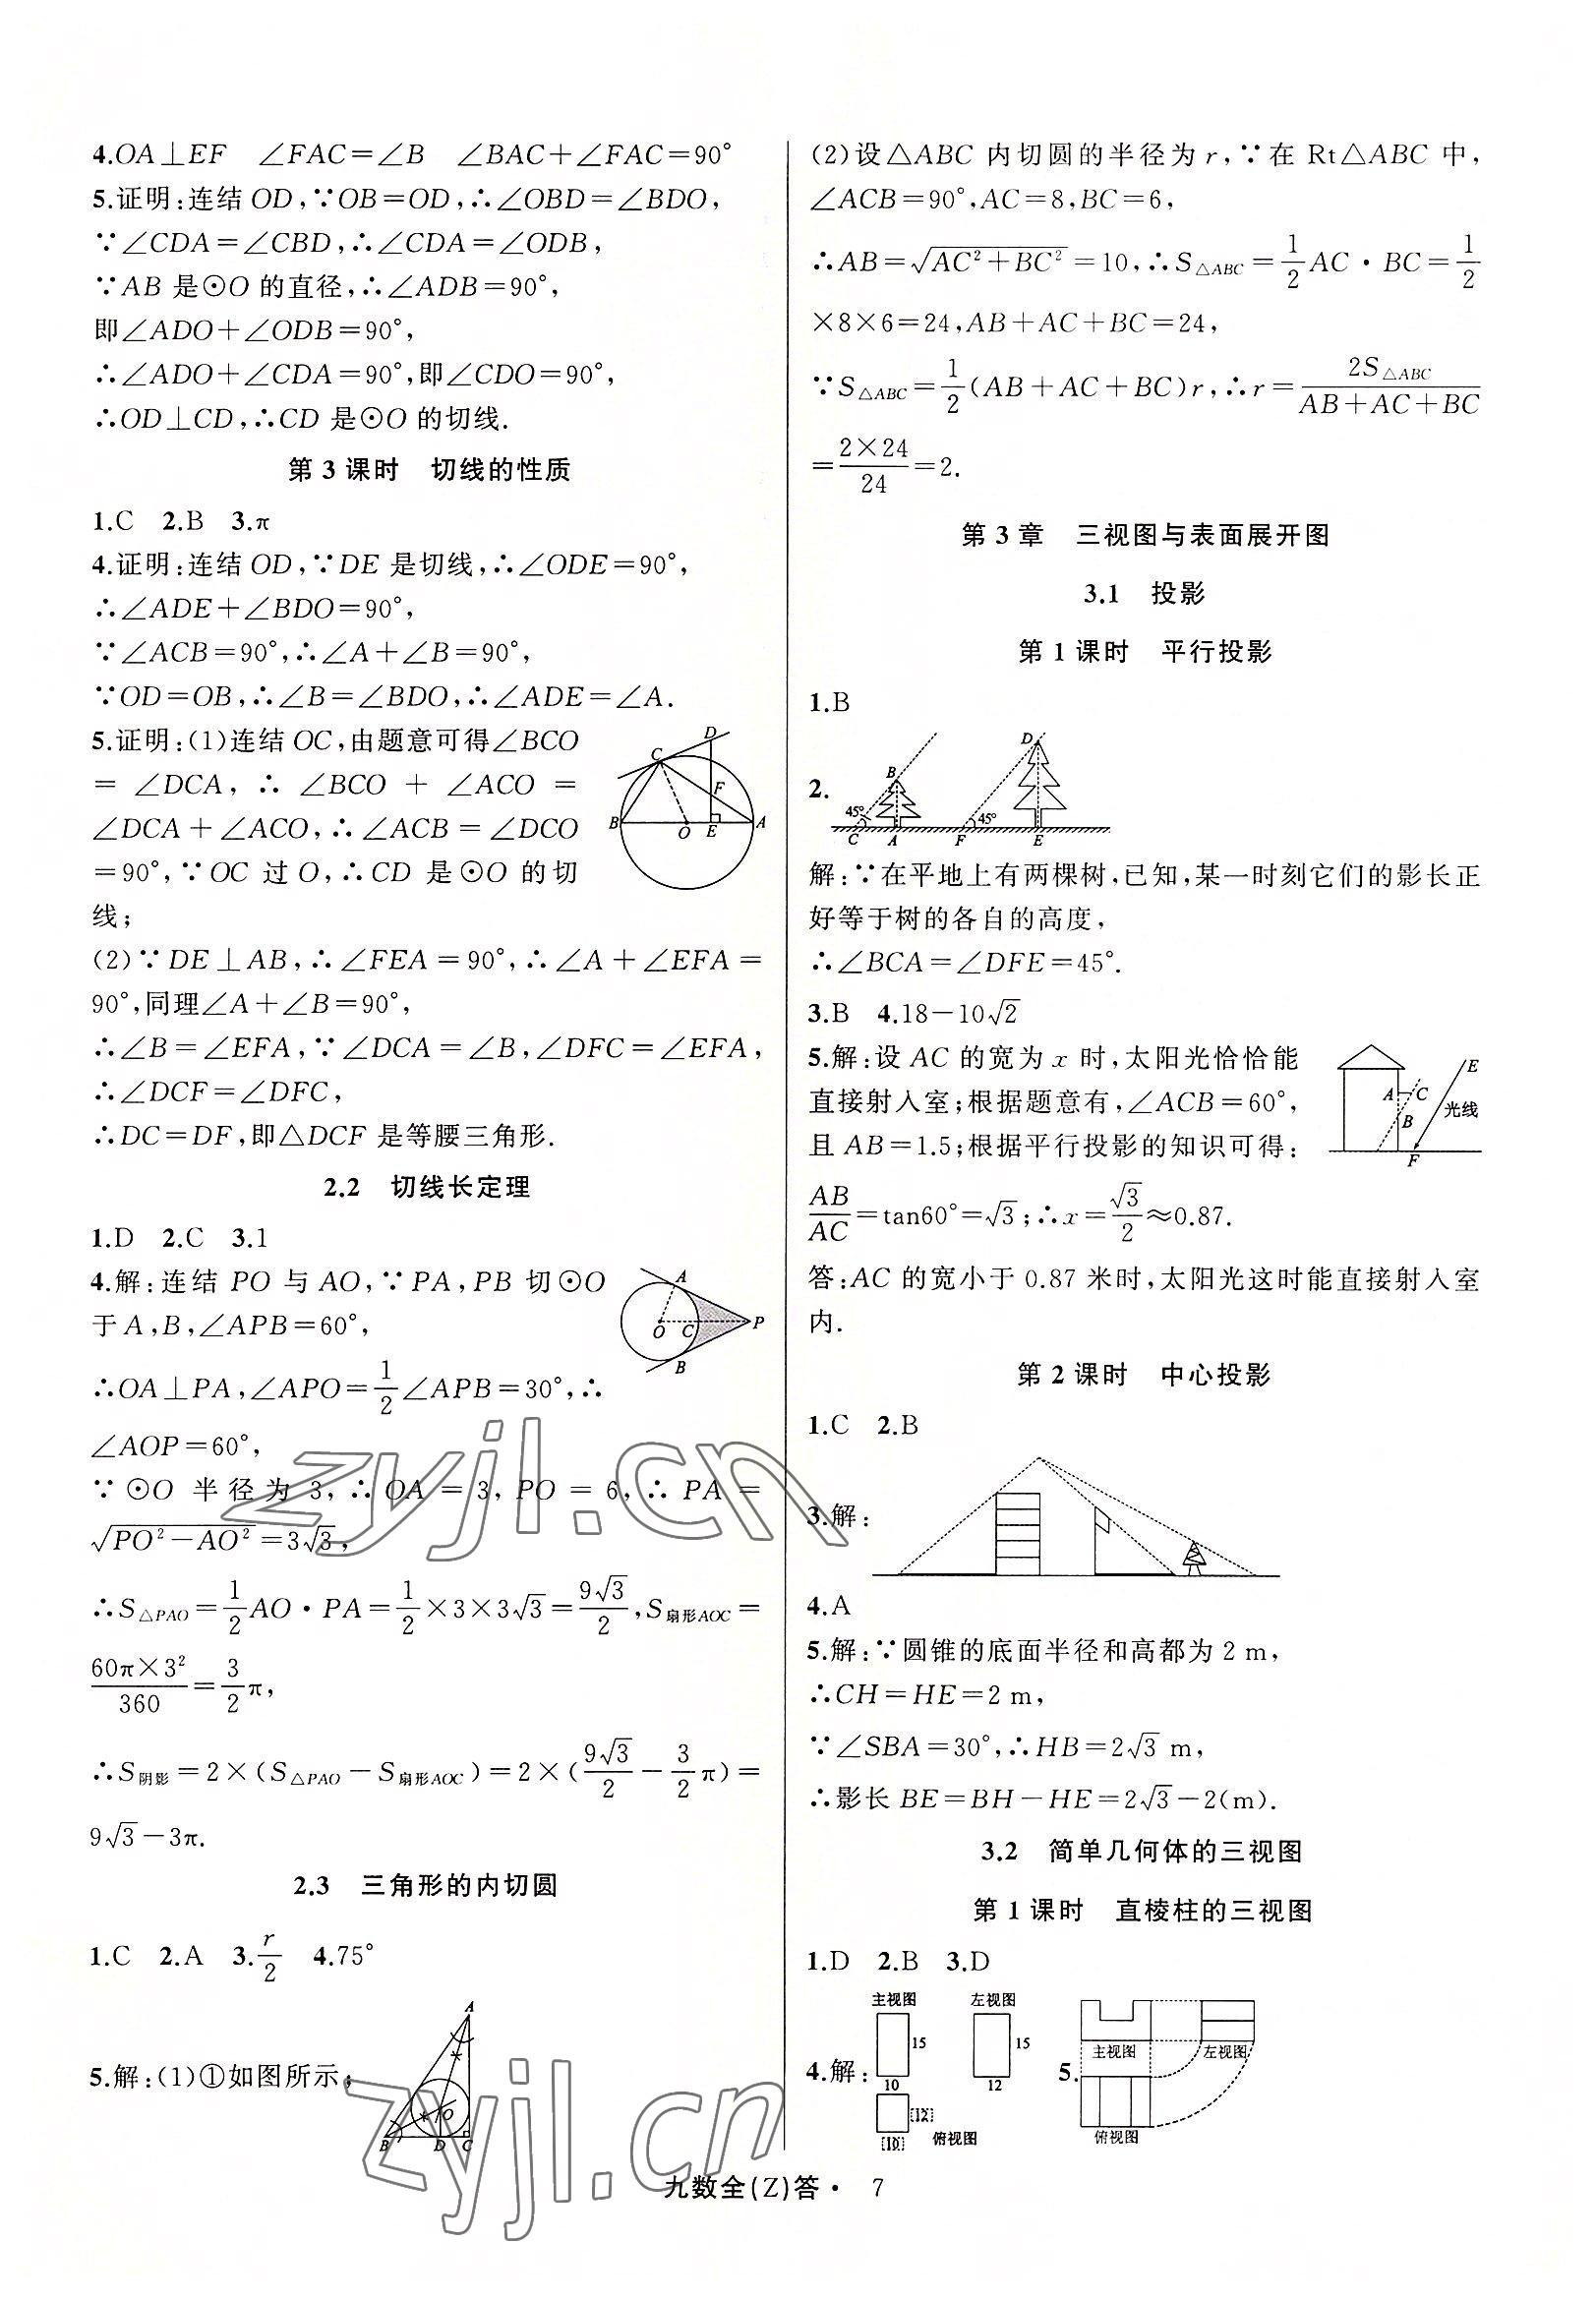 4.OA⊥EF　∠FAC=∠B　∠BAC+∠FAC=90°
5.证明:连结OD,∵OB=OD,∴∠OBD=∠BDO,
∵∠CDA=∠CBD,∴∠CDA=∠ODB,
∵AB是⊙O的直径,∴∠ADB=90°,
即∠ADO+∠ODB=90°,
∴∠ADO+∠CDA=90°,即∠CDO=90°,
∴OD⊥CD,∴CD是⊙O的切线.
第3课时　切线的性质
1.C　2.B　3.π
4.证明:连结OD,∵DE是切线,∴∠ODE=90°,
∴∠ADE+∠BDO=90°,
∵∠ACB=90°,∴∠A+∠B=90°,
∵OD=OB,∴∠B=∠BDO,∴∠ADE=∠A.
5.证明:(1)连结OC,由题意可得∠BCO
=∠DCA,∴∠BCO+∠ACO=
∠DCA+∠ACO,∴∠ACB=∠DCO
=90°,∵OC过O,∴CD是⊙O的切
线;
D
C
F
B
O
E
A
(2)∵DE⊥AB,∴∠FEA=90°,∴∠A+∠EFA=
90°,同理∠A+∠B=90°,
∴∠B=∠EFA,∵∠DCA=∠B,∠DFC=∠EFA,
∴∠DCF=∠DFC,
∴DC=DF,即△DCF是等腰三角形.
2.2　切线长定理
1.D　2.C　3.1
4.解:连结PO与AO,∵PA,PB切⊙O
于A,B,∠APB=60°,
∴OA⊥PA,∠APO=1/2∠APB=30°,∴
∠AOP=60°,
A
O
C
P
B
∵⊙O半径为3,∴OA=3,PO=6,∴PA=
√(PO²−AO²)=3√3,
∴S△PAO=1/2AO·PA=1/2×3×3√3=9√3/2,S扇形AOC=
60π×3²/360=3/2π,
∴S阴影=2×(S△PAO−S扇形AOC)=2×(9√3/2−3/2π)=
9√3−3π.
2.3　三角形的内切圆
1.C　2.A　3.r/2　4.75°
5.解:(1)①如图所示;
A
O
B
D
C
(2)设△ABC内切圆的半径为r,∵在Rt△ABC中,
∠ACB=90°,AC=8,BC=6,
∴AB=√(AC²+BC²)=10,∴S△ABC=1/2AC·BC=1/2
×8×6=24,AB+AC+BC=24,
∵S△ABC=1/2(AB+AC+BC)r,∴r=2S△ABC/(AB+AC+BC)
=2×24/24=2.
第3章　三视图与表面展开图
3.1　投影
第1课时　平行投影
1.B
2.
B
D
45°
45°
C
A
F
E
解:∵在平地上有两棵树,已知,某一时刻它们的影长正
好等于树的各自的高度,
∴∠BCA=∠DFE=45°.
3.B　4.18−10√2
5.解:设AC的宽为x时,太阳光恰恰能
直接射入室;根据题意有,∠ACB=60°,
且AB=1.5;根据平行投影的知识可得:
E
A
C
B
光线
F
AB/AC=tan60°=√3;∴x=√3/2≈0.87.
答:AC的宽小于0.87米时,太阳光这时能直接射入室
内.
第2课时　中心投影
1.C　2.B
3.解:
4.A
5.解:∵圆锥的底面半径和高都为2 m,
∴CH=HE=2 m,
∵∠SBA=30°,∴HB=2√3 m,
∴影长BE=BH−HE=2√3−2(m).
3.2　简单几何体的三视图
第1课时　直棱柱的三视图
1.D　2.B　3.D
4.解:
主视图
左视图
15
15
10
12
[12]
[10]
俯视图
5.
主视图
左视图
俯视图
九数全(Z)答·　7
zyjl.cn
zyjl.cn